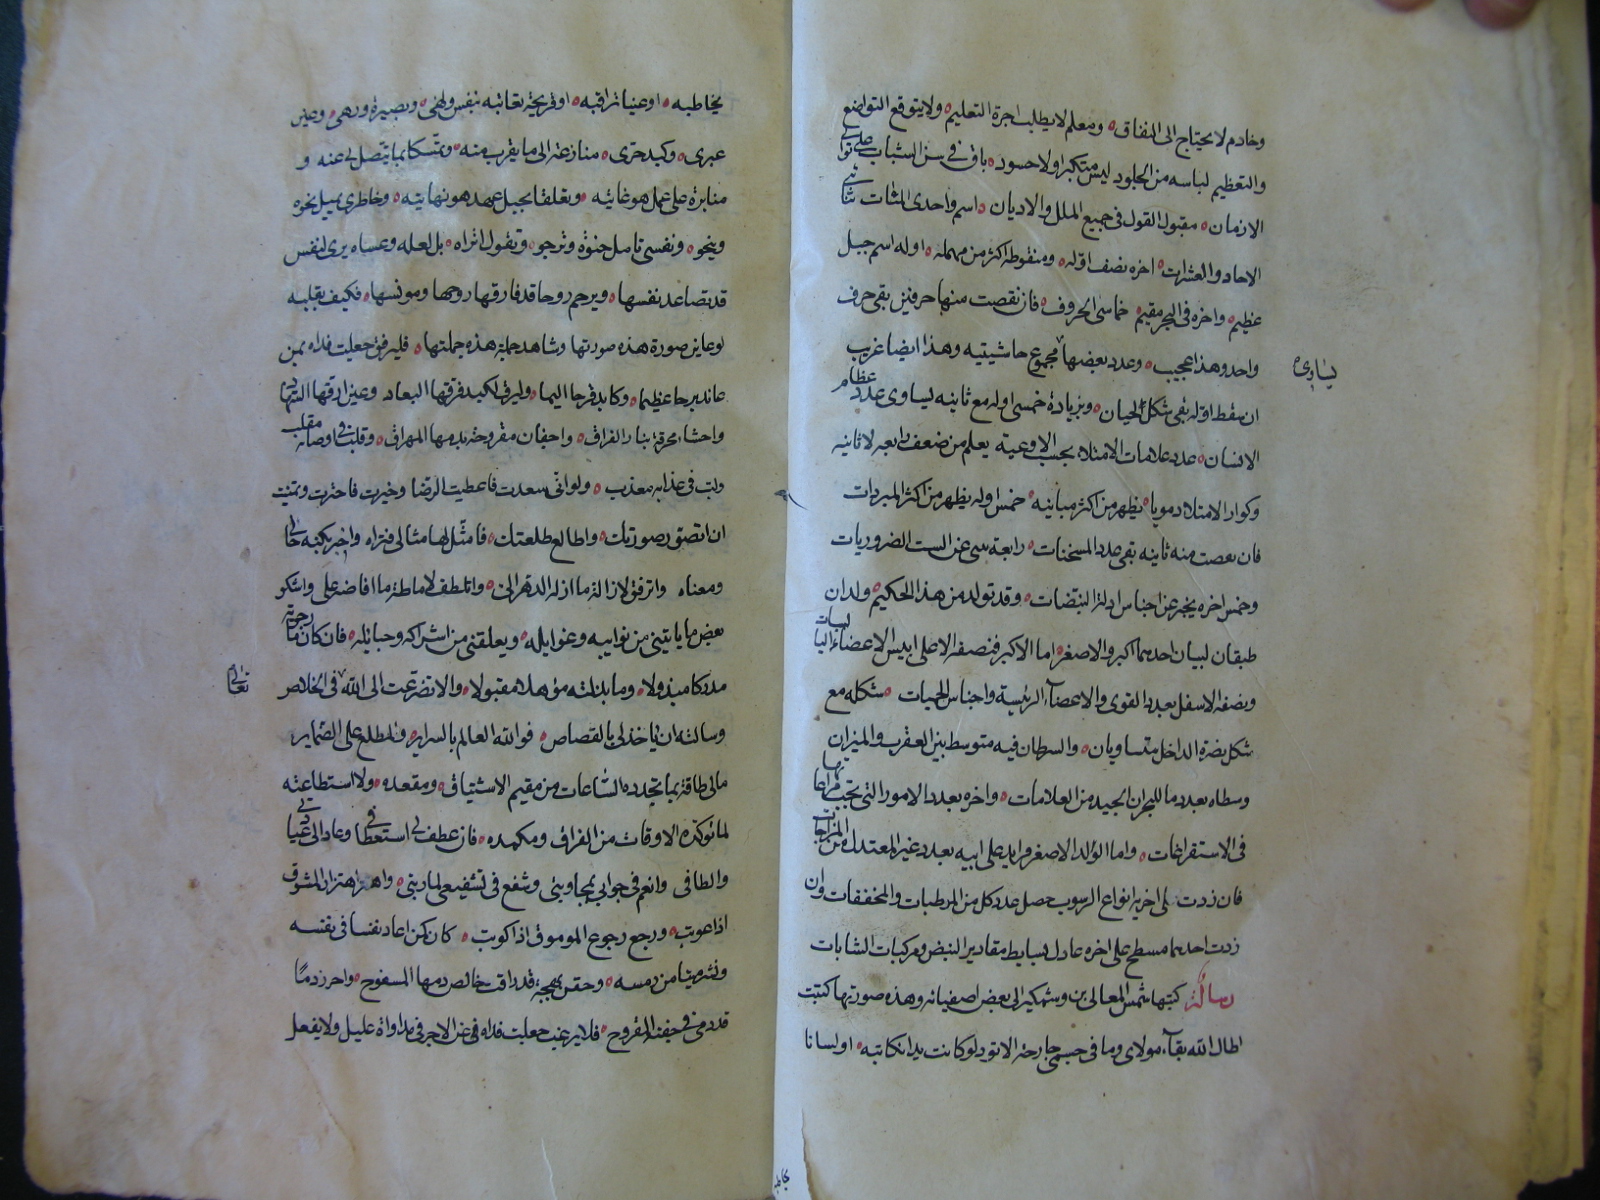 وخادم لا يحتاج الى النفاق ومعلم لا يطلب اجرة التعليم ولا يتوقع التواضع
والتعظيم لباسه من الجلود ليس متكبرا ولا حسود باق في سن الشباب على توالى
الازمان مقبول القول في جميع الملل والاديان اسم واحدى المئات ثنائى
الاحاد والعشرات اخره نصف اوله ومنقوطه اكثر من مهمله اوله اسم جبل
عظيم واخره فى البحر مقيم خماسى الحروف فان نقصت منها حرفين بقى حرف
واحد وهذا عجيب وعدد بعضها مجموع حاشيتيه وهذا ايضا غريب
يساوى
ان سقط اوله بقى شكل الحيان وبزيادة خمسى اوله مع ثانيه يساوى عدد عظام
الانسان عدد علامات الامتلاء بحسب الاوعية يعلم من ضعف رابعه لا ثانيه
وكوار الامتلاء دمويا يظهر من اكثر مبانيه خمس اوله يظهر من اكثر المبردات
فان نقصت منه ثانيه بقى عدد المسخنات رابعه ينبى عن الست الضروريات
وخمس اخره يخبر عن اجناس ادلة النبضات وقد تولد من هذا الحكيم ولدان
طبقان لبيان احدهما اكبر والاصغر اما الاكبر فنصفه الاعلى ايبس الاعضاء
ونصفه الاسفل بعدد القوى والاعضاء الرئيسة واجناس الحميات شكله مع
شكل نصرة الداخل متساويان والسرطان فيه متوسط بين العقرب والميزان
وسطاه بعدد ما للبحران الجيد من العلامات واخره بعدد الامور التى تجب مراعاتها
فى الاستفراغات واما الولد الاصغر فزايد على ابيه بعدد غير المعتدل من المزاجات
فان زدت على اخريه انواع الرسوب حصل عدد كل من المرطبات والمجففات وان
زدت احدهما مسطح على اخره عادل بسايط مقادير النبض ومركبات الشابات
رسالة كتبها شمس المعالى بن وشمكير الى بعض اصفيائه وهذه صورتها كتبت
اطال الله بقاء مولاى وما فى جسمى جارحة الا تود لو كانت يدا تكاتبه او لسانا
يخاطبه او عينا تراقبه او قريحة تعاتبه بنفس ولهى وبصيرة ورهى وعين
عبرى وكبد حرى منازعة الى ما يقرب منه وتمسكا بما يتصل بى عنه و
مثابرة على عمل هو غايته وتعلقا بحبل عهد هو نهايته وخاطرى يميل نحوه
وينحوه ونفسى تامل حنوه وترجوه وتقول اتراه بل لعله وعساه يرى لنفس
قد تصاعد نفسها ويرحم روحا قد فارقها روحها ومونسها فكيف بقلبه
لو عاين صورة هذه صورتها وشاهد جملة هذه جملتها فليرفق جعلت فداه بمن
عاند برحا عظيما وكابد قرحا اليما وليرق لكبد فرقها البعاد وعين ارقها السهاد
واحشاء محرقة بنار الفراق واجفان مقروحة بدمها المهراق وقلب فى اوصابه متقلب
ولب فى عذابه معذب ولو انى سعدت فاعطيت الرضا وخيرت فاخترت وتمنيت
ان اتصور صورتك واطالع طلعتك فامثل لها مثالى فتراه واخبر بكنه حالى
ومعناه واترفق لازالة ما ازله الدهر الى واتلطف لاماطة ما افاضه على واشكو
بعض ما ياتينى من نوايبه وغوايله ويعلقنى من اشراكه وحبايله فان كان ما رجوته
مدركا مبذولا وما بذلته مؤهلا مقبولا والا تضرعت الى الله فى الخلاص
تعالى
وسالته ان ياخذ لى بالقصاص فوالله العالم بالسراير والمطلع على الضماير
مالى طاقة بما تجدده الساعات من مقيم الاشتياق ومقعده ولا استطاعته
لما تؤكده الاوقات من الفراق ومكمده فان عطف فى استعطافى وعاد الى
والطافى وانعم فى جوابى بمجاوبتى وشفع فى تشفيعى لماربتى واهتز اهتزاز المشوق
اذا عوتب ورجع رجوع الموموق اذا كوتب كان كمن اعاد نفسا فى نفسه
ونشر ميتا من رمسه وحقن مهجة قد راقت خالص دمها المسفوح واحرز دمًا
قد دمى فى جفنه المقروح فلا يرغبن جعلت فداه فى عن الاجر فى مداواة عليل ولا يغفل
يخاطبه